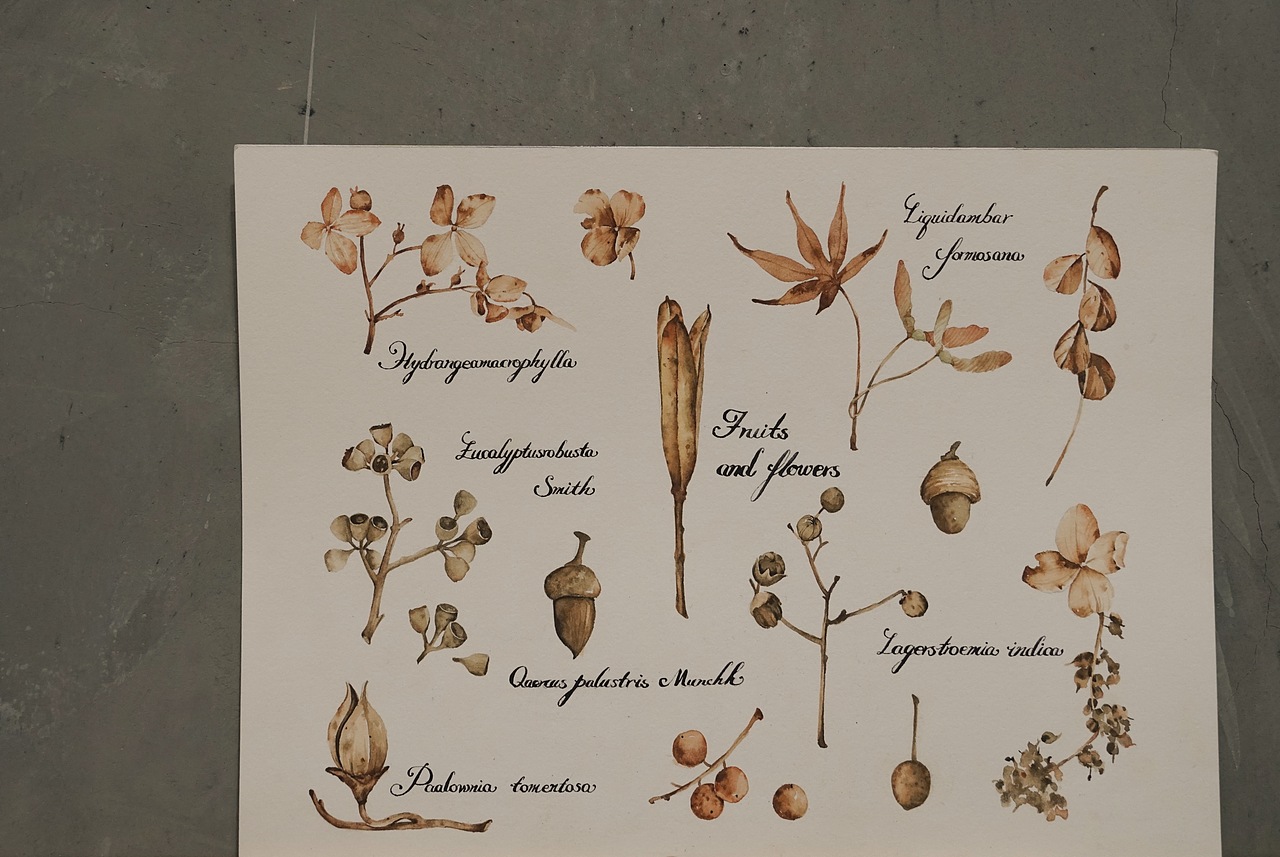 Liquidambar
formosana
Hydrangeamacrophylla
Fruits
and flowers
Eucalyptusrobusta
Smith
Lagerstroemia indica
Quercus palustris Munchh
Paalownia tomentosa